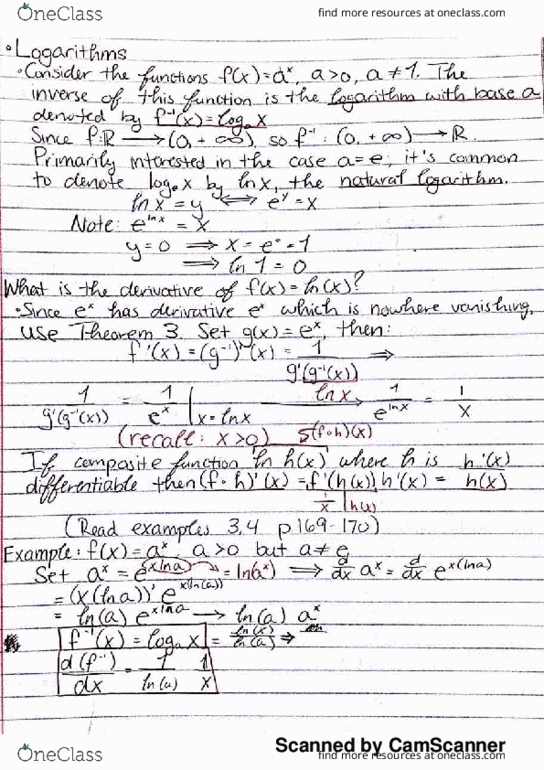 OneClass
find more resources at oneclass.com
• Logarithms
• Consider the functions f(x)=aˣ, a>0, a≠1. The
inverse of this function is the logarithm with base a
denoted by f⁻¹(x)=logₐx
Since f:ℝ → (0,+∞), so f⁻¹:(0,+∞) → ℝ.
Primarily interested in the case a=e, it's common
to denote logₑx by ln x, the natural logarithm.
ln x = y ⟺ eʸ = x
Note: e^(ln x) = x
y=0 ⟹ x = e⁰ = 1
⟹ ln 1 = 0
What is the derivative of f(x)=ln(x)?
• Since eˣ has derivative eˣ which is nowhere vanishing,
use Theorem 3. Set g(x)=eˣ, then:
f'(x)=(g⁻¹)'(x)= 1/g'(g⁻¹(x)) ⟹
ln x
1/g'(g⁻¹(x)) = 1/eˣ | x=ln x 1/e^(ln x) = 1/x
(recall: x>0) (f∘h)(x)
If composite function ln h(x) where h is
differentiable then (f∘h)'(x) = f'(h(x))h'(x) = h'(x)/h(x)
1/x | h(x)
(Read examples 3,4 p169-170)
Example: f(x)=aˣ, a>0 but a≠e
Set aˣ = e^(x ln a) = ln(aˣ) ⟹ d/dx aˣ = d/dx e^(x(ln a))
= (x(ln a))' e^(x(ln(a)))
= ln(a) e^(x ln a) → ln(a) aˣ
f⁻¹(x) = logₐx = ln(x)/ln(a) ⟹
d(f⁻¹)/dx = 1/ln(a) 1/x
Scanned by CamScanner
OneClass
find more resources at oneclass.com